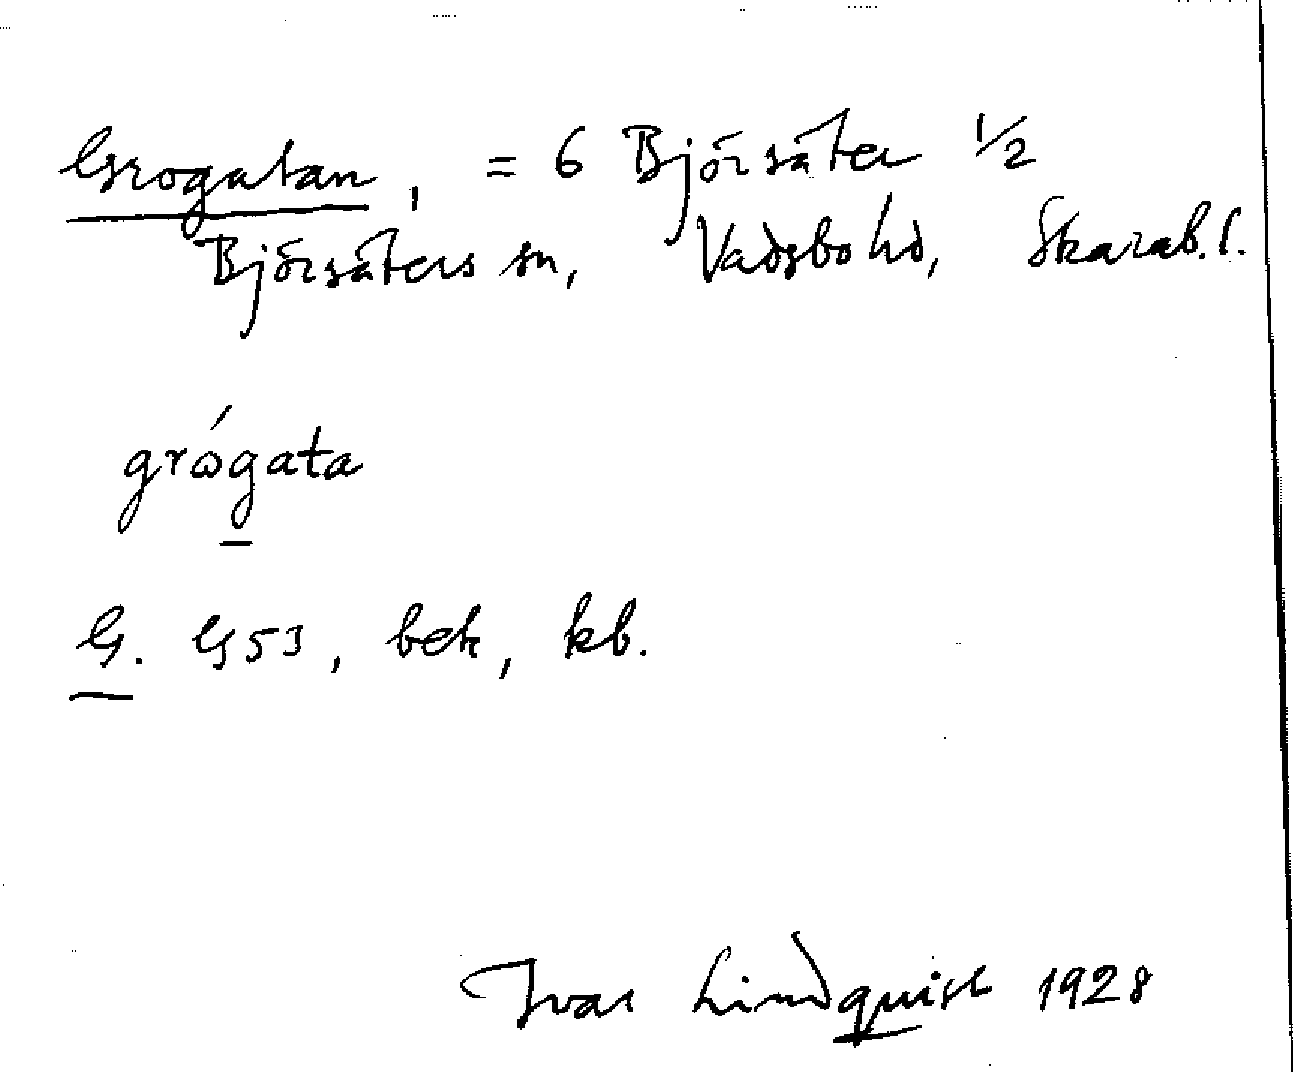 Grogatan, = 6 Björsäter 1/2
Björsäters sn, Vadsbo hd, Skarab. l.
grógata
G. G53, bek, kb.
Ivar Lindquist 1928